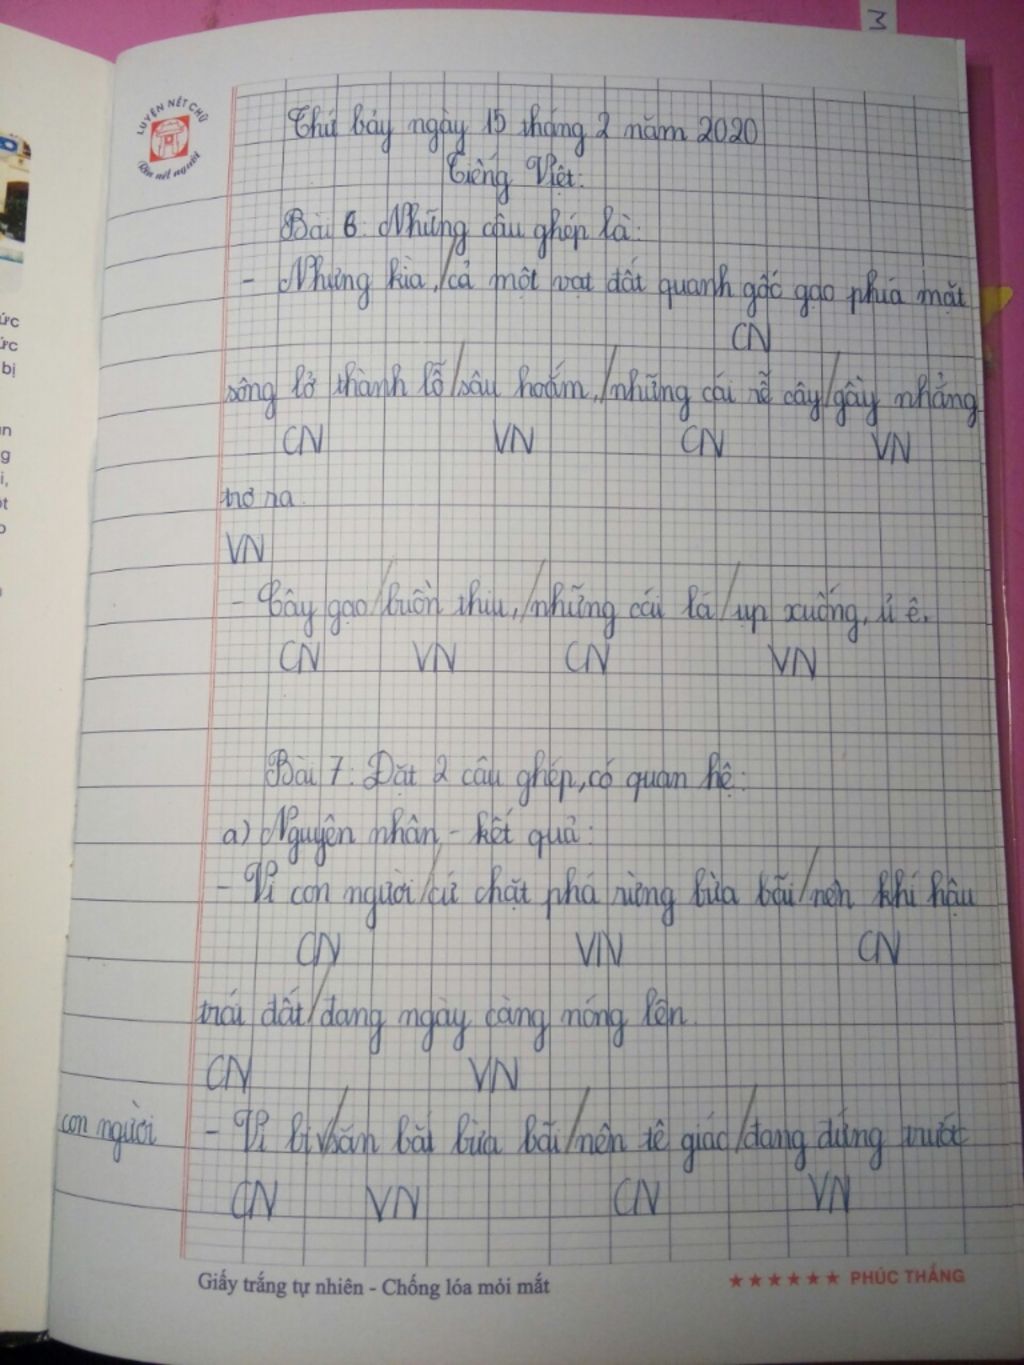 3
LUYỆN NÉT CHỮ
Rèn nết người
Thứ bảy ngày 15 tháng 2 năm 2020
Tiếng Việt:
Bài 6: Những câu ghép là:
- Nhưng kìa,/cả một vạt đất quanh gốc gạo phía mặt
CN
sông lở thành lỗ/sâu hoắm,/những cái rễ cây/gầy nhẳng
CN VN CN VN
trơ ra.
VN
- Cây gạo/buồn thiu,/những cái lá/ụp xuống, ủ ê.
CN VN CN VN
Bài 7: Đặt 2 câu ghép, có quan hệ:
a) Nguyên nhân - kết quả:
- Vì con người/cứ chặt phá rừng bừa bãi/nên khí hậu
CN VN CN
trái đất/đang ngày càng nóng lên.
CN VN
con người - Vì bị/săn bắt bừa bãi/nên tê giác/đang đứng trước
CN VN CN VN
Giấy trắng tự nhiên - Chống lóa mỏi mắt ★★★★★★ PHÚC THẮNG
ức
ức
bị
n
g
i,